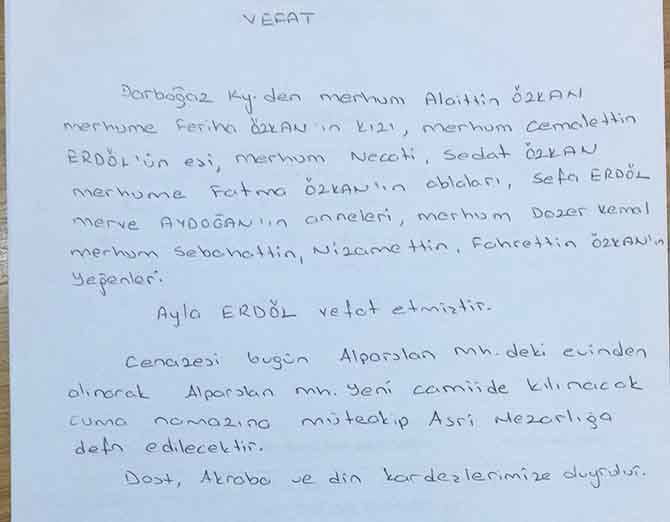 VEFAT
Darboğaz Ky.den merhum Alaittin ÖZKAN
merhume Feriha ÖZKAN'ın kızı, merhum Cemalettin
ERDÖL'ün eşi, merhum Necati, Sedat ÖZKAN
merhume Fatma ÖZKAN'ın ablaları, Sefa ERDÖL
merve AYDOĞAN'ın anneleri, merhum Dozer Kemal
merhum Sebahattin, Nizamettin, Fahrettin ÖZKAN'ın
yeğenleri.
Ayla ERDÖL vefat etmiştir.
Cenazesi bugün Alparslan mh.deki evinden
alınarak Alparslan mh. Yeni camiide kılınacak
cuma namazına müteakip Asri Mezarlığa
defn edilecektir.
Dost, Akraba ve din kardeşlerimize duyrulur.